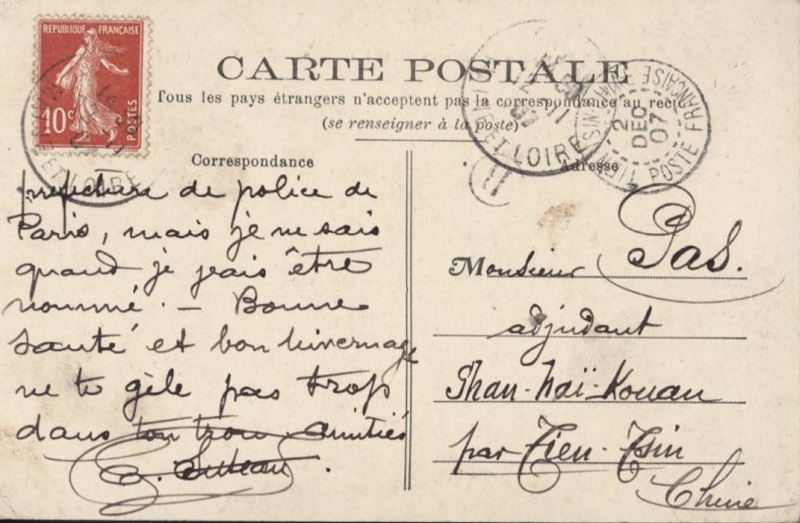 REPUBLIQUE FRANÇAISE
10c
POSTES
CARTE POSTALE
Tous les pays étrangers n'acceptent pas la correspondance au recto
(se renseigner à la poste)
Correspondance
Adresse
ET LOIRE
ET LOIRE
11
07
TIEN TSIN CHINE POSTE FRANÇAISE
2
DEC
07
préfecture de police de
Paris, mais je ne sais
quand je vais être
nommé. – Bonne
santé et bon hivernage
ne te gèle pas trop
dans ton trou amitiés
Monsieur Pas.
adjudant
Shan-haï-Kouan
par Tien-Tsin
Chine